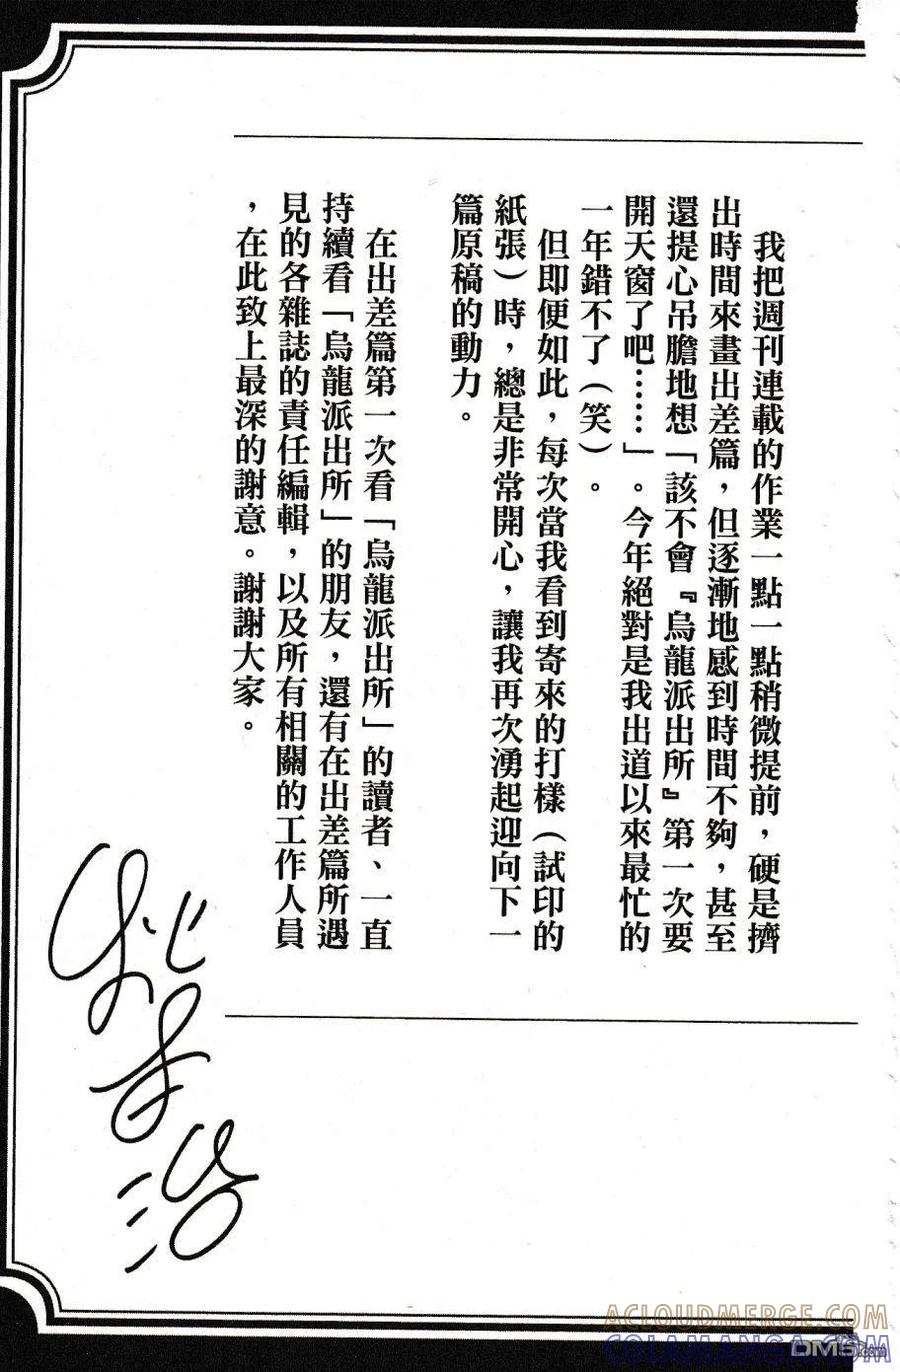 我把週刊連載的作業一點一點稍微提前，硬是擠
出時間來畫出差篇，但逐漸地感到時間不夠，甚至
還提心吊膽地想「該不會『烏龍派出所』第一次要
開天窗了吧……」。今年絕對是我出道以來最忙的
一年錯不了（笑）。
但即便如此，每次當我看到寄來的打樣（試印的
紙張）時，總是非常開心，讓我再次湧起迎向下一
篇原稿的動力。
在出差篇第一次看「烏龍派出所」的讀者、一直
持續看「烏龍派出所」的朋友，還有在出差篇所遇
見的各雜誌的責任編輯，以及所有相關的工作人員
，在此致上最深的謝意。謝謝大家。
ACLOUDMERGE.COM
COLAMANGA.COM